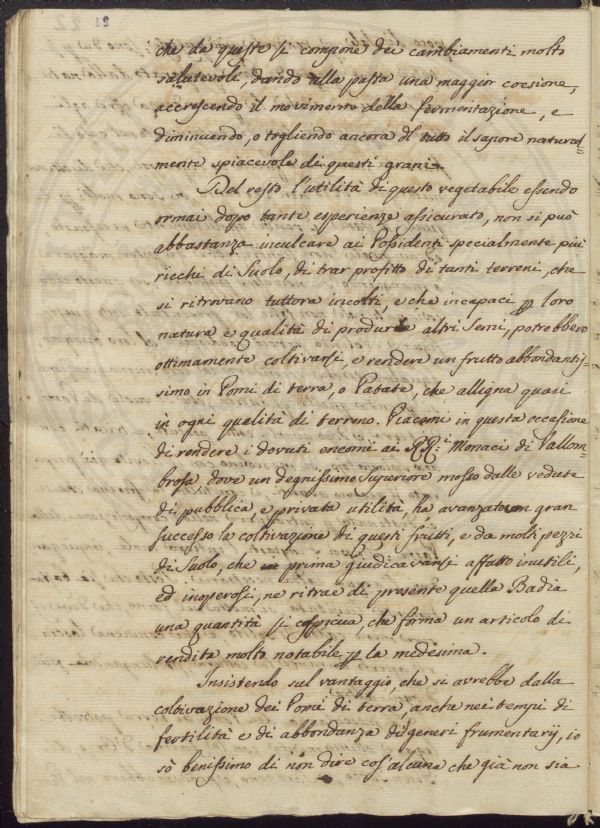 che da queste si compone dei cambiamenti molto
salutevoli, dando alla pasta una maggior coesione,
accrescendo il movimento della fermentazione, e
diminuendo, o togliendo ancora del tutto il sapore natural=
mente spiacevole di questi grani.
Del resto l'utilità di questo vegetabile essendo
ormai dopo tante esperienze assicurato, non si può
abbastanza inculcare ai Possidenti specialmente più
ricchi di Suolo, di trar profitto di tanti terreni, che
si ritrovano tuttora incolti, e che incapaci p loro
natura e qualità di produrre altri Semi, potrebbero
ottimamente coltivarsi, e rendere un frutto abbondantis=
simo in Pomi di terra, o Patate, che alligna quasi
in ogni qualità di terreno. Piacemi in questa occasione
di rendere i dovuti encomi ai RR: Monaci di Vallom=
brosa dove un degnissimo Superiore mosso dalle vedute
di pubblica, e privata utilità, ha avanzato con gran
successo la coltivazione di questi frutti, e da molti pezzi
di Suolo, che prima giudicavansi affatto inutili,
ed inoperosi, ne ritrae di presente quella Badia
una quantità sì cospicua, che forma un articolo di
rendita molto notabile p la medesima.
Insistendo sul vantaggio, che si avrebbe dalla
coltivazione dei Pomi di terra, anche nei tempi di
fertilità e di abbondanza di generi frumentarij, io
sò benissimo di non dire cos'alcuna che già non sia